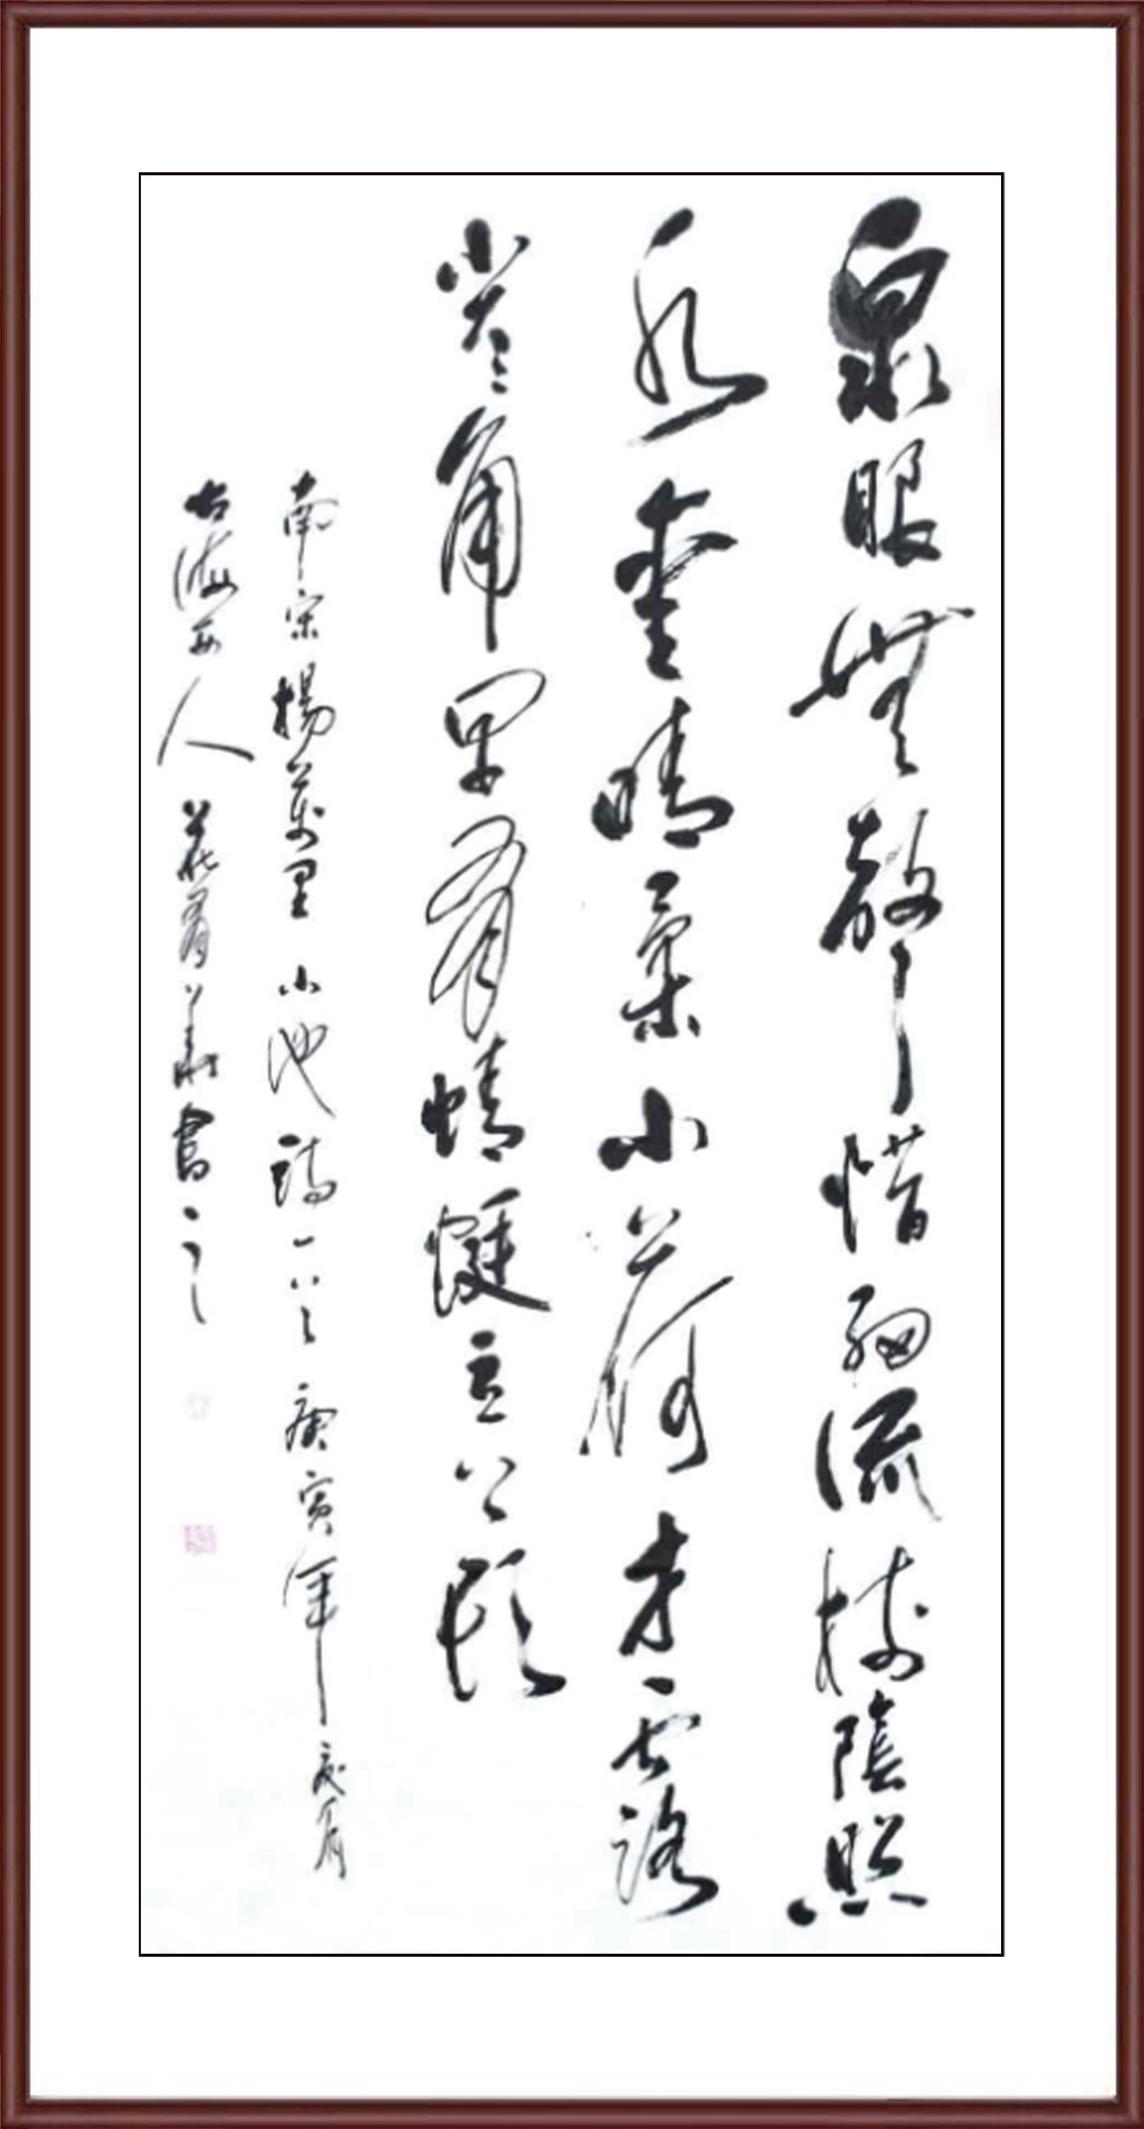 泉眼無聲惜細流樹陰照
水愛晴柔小荷才露
尖尖角早有蜻蜓立上頭
南宋楊萬里小池詩一首庚寅年夏月
古海西人
書